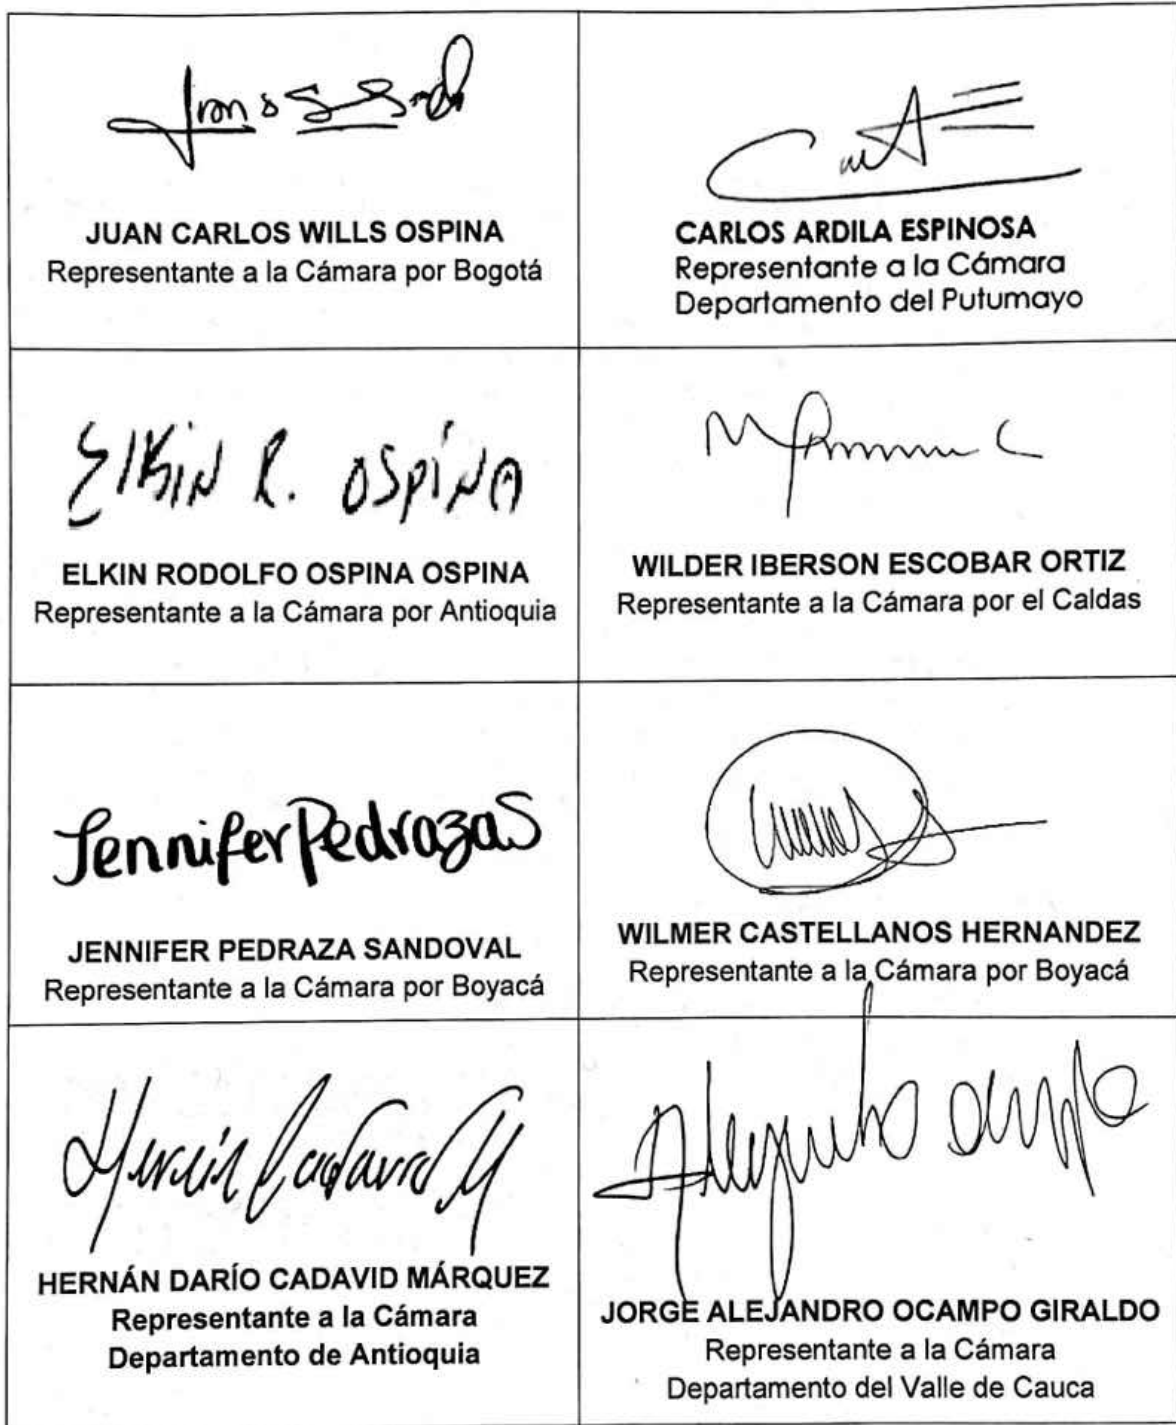 JUAN CARLOS WILLS OSPINA
Representante a la Cámara por Bogotá
CARLOS ARDILA ESPINOSA
Representante a la Cámara
Departamento del Putumayo
ELKIN R. OSPINA
ELKIN RODOLFO OSPINA OSPINA
Representante a la Cámara por Antioquia
WILDER IBERSON ESCOBAR ORTIZ
Representante a la Cámara por el Caldas
Jennifer Pedraza S
JENNIFER PEDRAZA SANDOVAL
Representante a la Cámara por Boyacá
WILMER CASTELLANOS HERNANDEZ
Representante a la Cámara por Boyacá
Hernán Cadavid M
HERNÁN DARÍO CADAVID MÁRQUEZ
Representante a la Cámara
Departamento de Antioquia
Alejandro Ocampo
JORGE ALEJANDRO OCAMPO GIRALDO
Representante a la Cámara
Departamento del Valle de Cauca